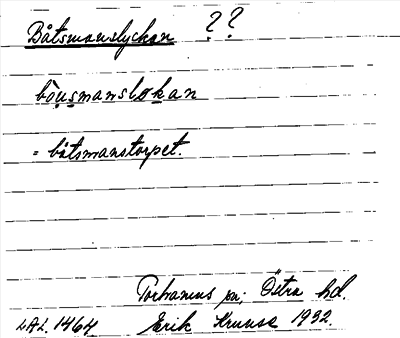 Båtsmanslyckan ??
bòusmanslokan
= båtsmanstorpet.
Torhamns sn, Östra hd.
LAL. 1464 Erik Kruuse 1932.